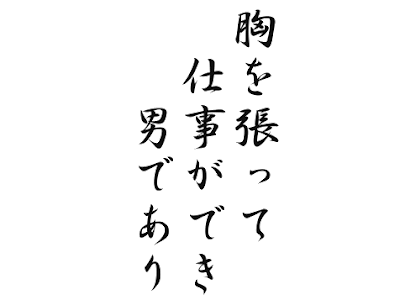 胸を張って
仕事ができ
男であり